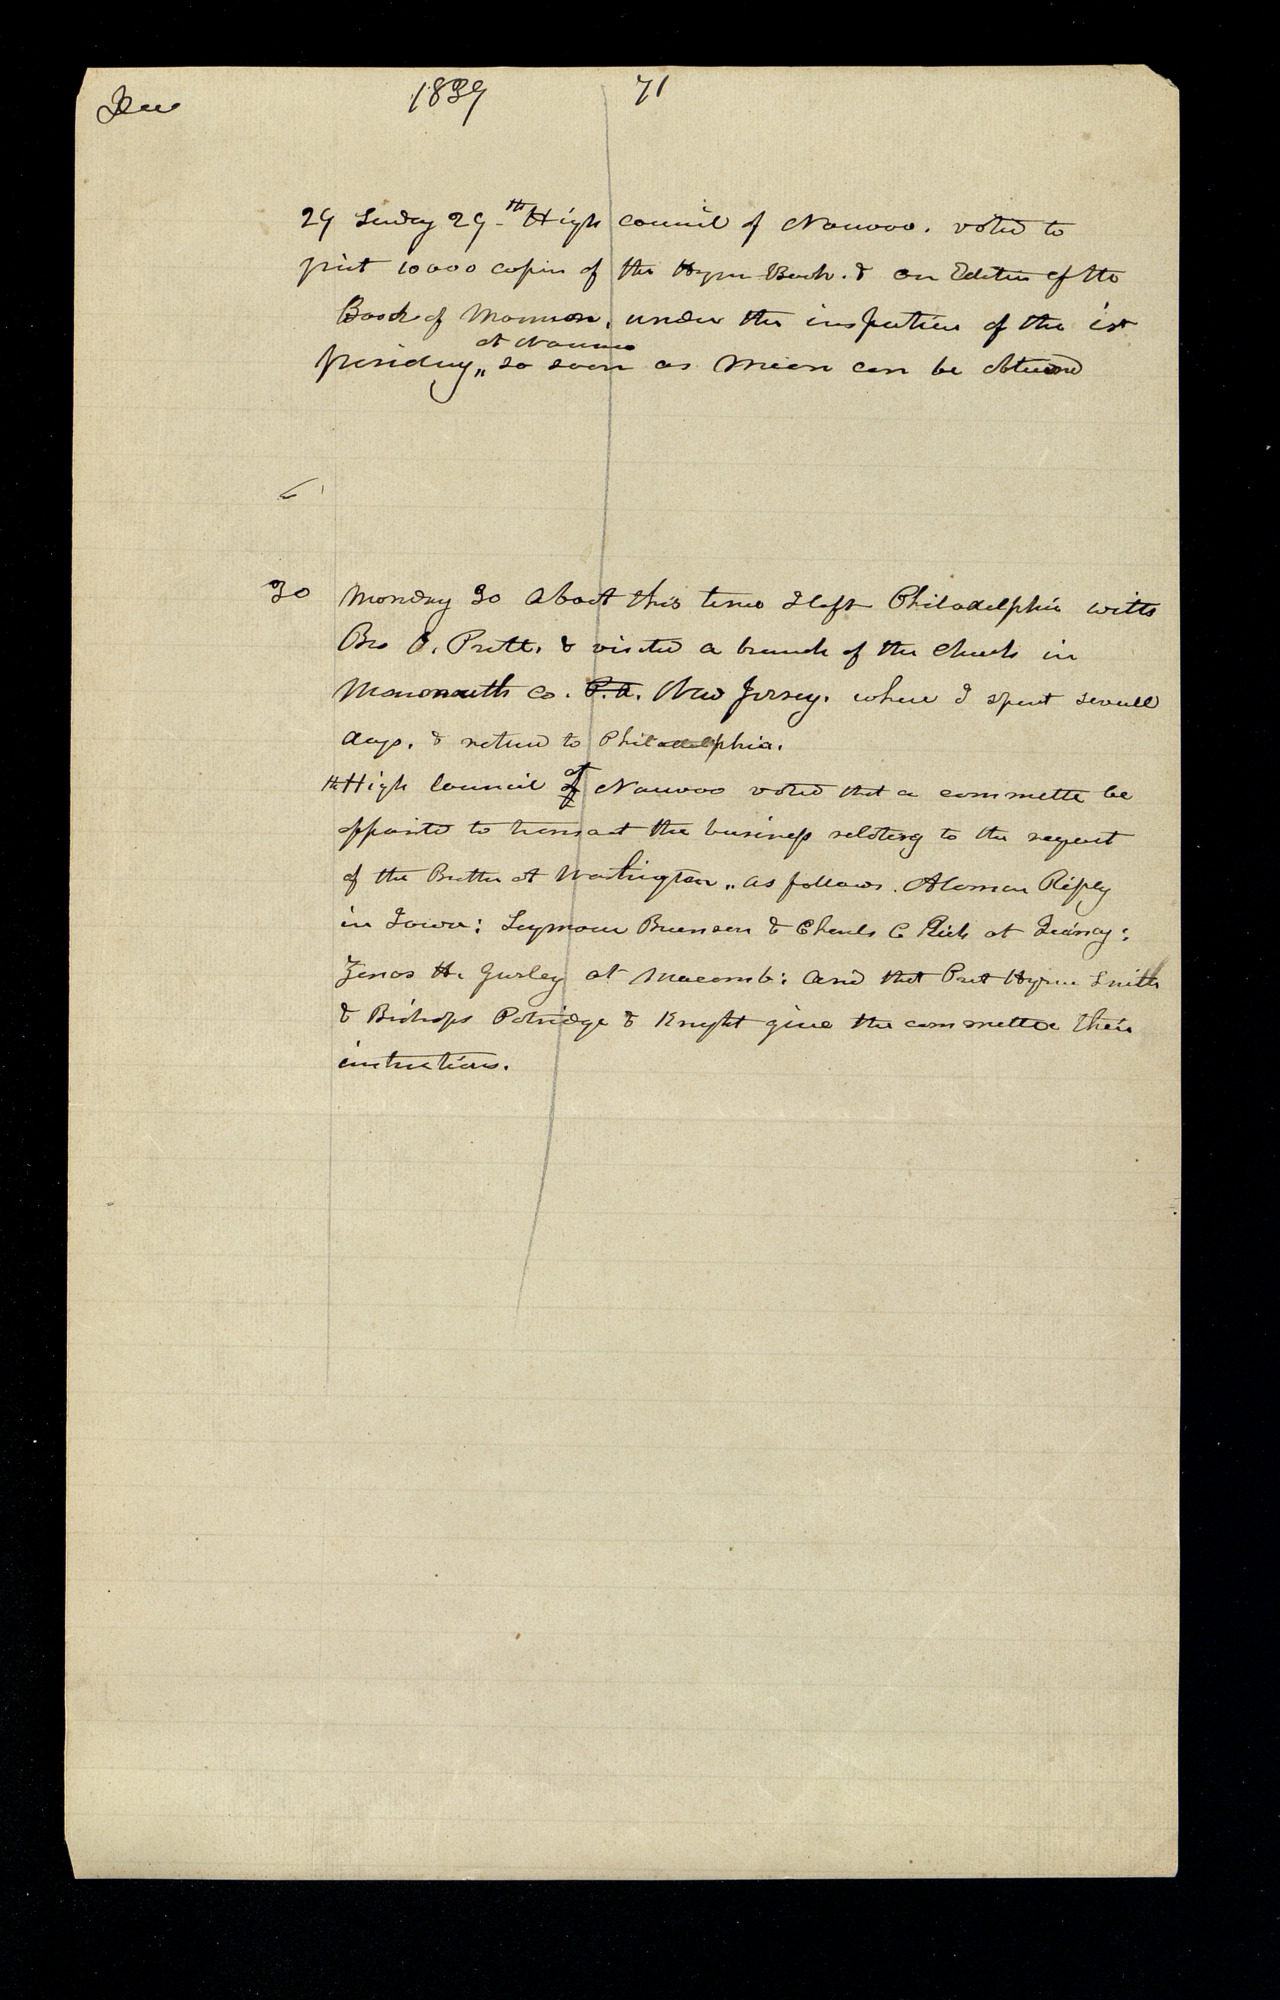 Dec 1839 71
29 Sunday 29- th High council of Nauvoo. voted to
print 10000 copies of the Hym Book. & an Edetin of the
Book of Mormon, under the inspection of the 1st
at Nauvoo
presidncy,, so soon as means can be obtained
30 Monday 30 About this time I left Philadelphia with
Bro O. Pratt. & visited a branch of the church in
Monmouth co. P.A. New Jersey. where I spent sevell
days. & returnd to Philadelphia.
th High Council of at Nauvoo voted that a committe be
appointd to transact the business relating to the request
of the Brethe at Washington,, as follows. Alanson Ripley
in Iowa; Seymour Brunson & Charls C Rich at Quincy;
Zenos H. Gurley at Macomb; And that Prst Hyrum Smith
& Bishops Patridge & Knight give the committee their
instructions.